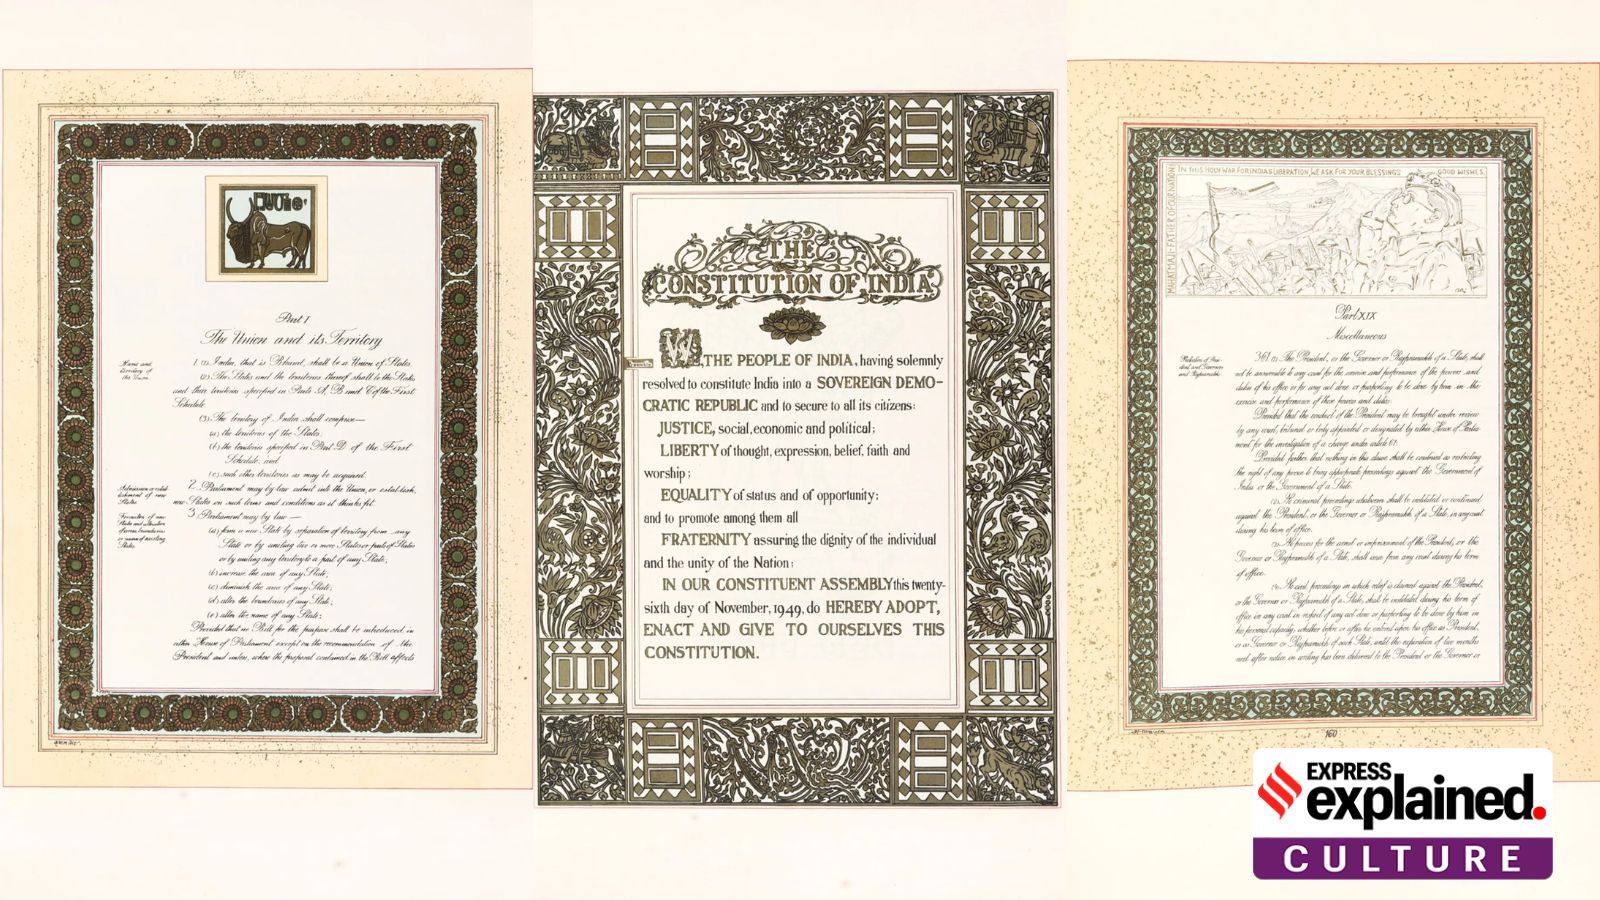 Part I
The Union and its Territory
Name and
territory of
the Union.
1. (1) India, that is Bharat, shall be a Union of States.
(2) The States and the territories thereof shall be the States
and their territories specified in Parts A, B and C of the First
Schedule.
(3) The territory of India shall comprise—
(a) the territories of the States;
(b) the territories specified in Part D of the First
Schedule; and
(c) such other territories as may be acquired.
Admission or estab-
lishment of new
States.
2. Parliament may by law admit into the Union, or establish,
new States on such terms and conditions as it thinks fit.
Formation of new
States and alteration
of areas, boundaries
or names of existing
States.
3. Parliament may by law —
(a) form a new State by separation of territory from any
State or by uniting two or more States or parts of States
or by uniting any territory to a part of any State;
(b) increase the area of any State;
(c) diminish the area of any State;
(d) alter the boundaries of any State;
(e) alter the name of any State:
Provided that no Bill for the purpose shall be introduced in
either House of Parliament except on the recommendation of the
President and unless, where the proposal contained in the Bill affects
THE
CONSTITUTION OF INDIA
WE, THE PEOPLE OF INDIA, having solemnly
resolved to constitute India into a SOVEREIGN DEMO-
CRATIC REPUBLIC and to secure to all its citizens:
JUSTICE, social, economic and political;
LIBERTY of thought, expression, belief, faith and
worship;
EQUALITY of status and of opportunity;
and to promote among them all
FRATERNITY assuring the dignity of the individual
and the unity of the Nation;
IN OUR CONSTITUENT ASSEMBLY this twenty-
sixth day of November, 1949, do HEREBY ADOPT,
ENACT AND GIVE TO OURSELVES THIS
CONSTITUTION.
MAHATMAJI-FATHER OF OUR NATION
IN THIS HOLY WAR FOR INDIA'S LIBERATION, WE ASK FOR YOUR BLESSINGS GOOD WISHES.
Part XIX
Miscellaneous
Protection of Presi-
dent and Governors
and Rajpramukhs.
361. (1) The President, or the Governor or Rajpramukh of a State, shall
not be answerable to any court for the exercise and performance of the powers and
duties of his office or for any act done or purporting to be done by him in the
exercise and performance of those powers and duties:
Provided that the conduct of the President may be brought under review
by any court, tribunal or body appointed or designated by either House of Parlia-
ment for the investigation of a charge under article 61:
Provided further that nothing in this clause shall be construed as restricting
the right of any person to bring appropriate proceedings against the Government of
India or the Government of a State.
(2) No criminal proceedings whatsoever shall be instituted or continued
against the President, or the Governor or Rajpramukh of a State, in any court
during his term of office.
(3) No process for the arrest or imprisonment of the President, or the
Governor or Rajpramukh of a State, shall issue from any court during his term
of office.
(4) No civil proceedings in which relief is claimed against the President,
or the Governor or Rajpramukh of a State, shall be instituted during his term of
office in any court in respect of any act done or purporting to be done by him in
his personal capacity, whether before or after he entered upon his office as President,
or as Governor or Rajpramukh of such State, until the expiration of two months
next after notice in writing has been delivered to the President or the Governor or
160
EXPRESS
explained.
CULTURE